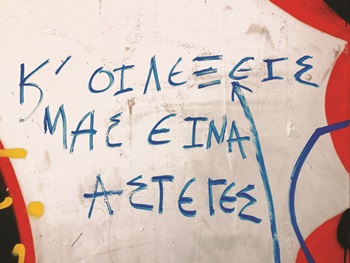 Κ' ΟΙ ΛΕΞΕΙΣ
ΜΑΣ ΕΙΝΑ
ΑΣΤΕΓΕΣ